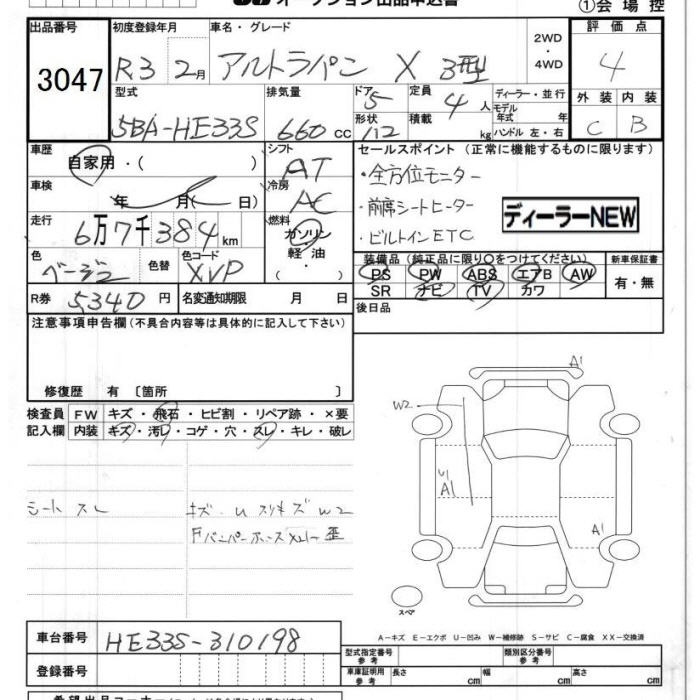 オークション出品申込書
①会場控
出品番号 3047
初度登録年月 R3 2月
車名・グレード アルトラパン X 3型
2WD
・
4WD
評価点 4
型式 5BA-HE33S
排気量 660 cc
ドア 5
形状 /12
定員 4 人
積載 kg
ディーラー・並行
モデル年式 年
ハンドル 左・右
外装 C
内装 B
車歴 自家用・( )
シフト AT
セールスポイント (正常に機能するものに限ります)
・全方位モニター
・前席シートヒーター
・ビルトインETC
ディーラーNEW
車検 年 月( 日)
冷房 AC
走行 6万7千384km
燃料 ガソリン・軽油・( )
色 ベージュ
色替
色コード XVP
装備品(純正品に限り○をつけてください)
PS PW ABS エアB AW
SR ナビ TV カワ
新車保証書 有・無
R券 5340円
名変通知期限 月 日
後日品
注意事項申告欄(不具合内容等は具体的に記入して下さい)
修復歴 有 〔箇所 〕
検査員記入欄
FW キズ・飛石・ヒビ割・リペア跡・×要
内装 キズ・汚レ・コゲ・穴・スレ・キレ・破レ
シートスレ
キズ・U スリキズ W2
Fバンパーホース メクレ 歪
A1
W2
U1
A1
A1
スペア
A-キズ E-エクボ U-凹み W-補修跡 S-サビ C-腐食 XX-交換済
車台番号 HE33S-310198
登録番号
型式指定番号 参考
類別区分番号 参考
車庫証明用 参考 長さ 幅 高さ